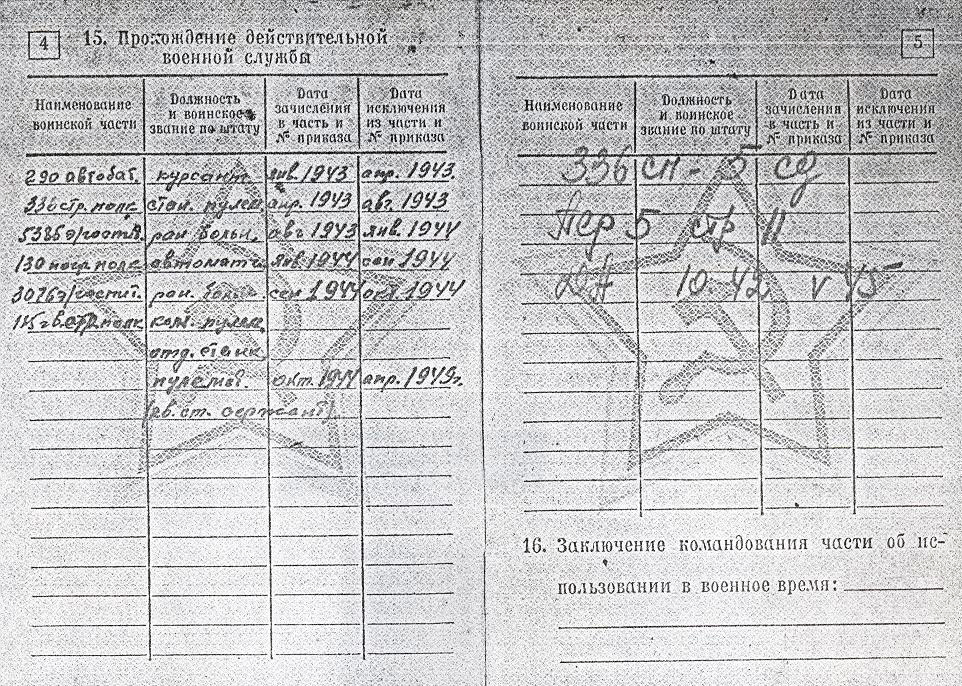 4
15. Прохождение действительной
военной службы
Наименование воинской части
Должность и воинское звание по штату
Дата зачисления в часть и № приказа
Дата исключения из части и № приказа
290 автобат. курсант янв. 1943 апр. 1943.
336 стр. полк стан. пулем апр. 1943 авг. 1943
5385 э/госп. ран. больн. авг 1943 янв. 1944
130 погр. полк автоматч янв. 1944 сен 1944
3026 э/госпит. ран. больн сен 1944 окт. 1944
гв. стр. полк ком. пулем
отд. станк
пулемет. окт. 1944 апр. 1949г.
(гв. ст. сержант)
5
Наименование воинской части
Должность и воинское звание по штату
Дата зачисления в часть и № приказа
Дата исключения из части и № приказа
336 сп - 5 сд
Пер 5 стр 11
ДА 10. 42 V 45
16. Заключение командования части об ис-
пользовании в военное время: